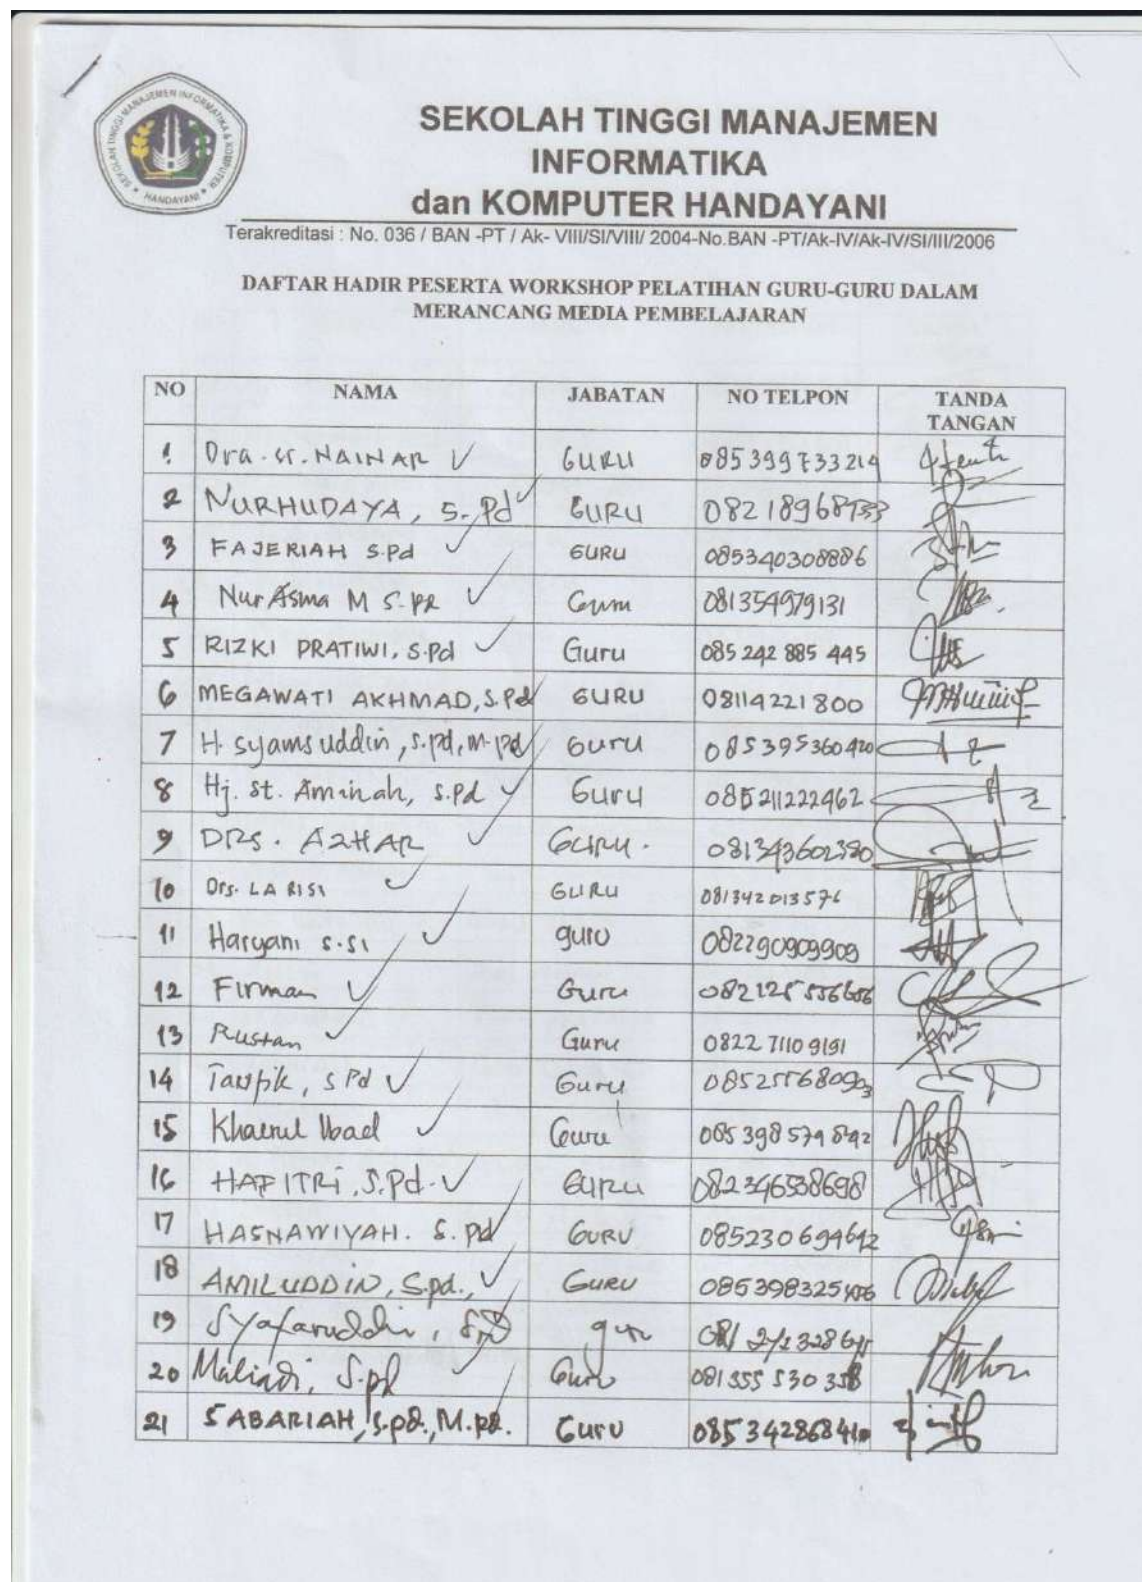 SEKOLAH TINGGI MANAJEMEN INFORMATIKA & KOMPUTER
HANDAYANI
SEKOLAH TINGGI MANAJEMEN
INFORMATIKA
dan KOMPUTER HANDAYANI
Terakreditasi : No. 036 / BAN -PT / Ak- VIII/SI/VIII/ 2004-No.BAN -PT/Ak-IV/Ak-IV/SI/III/2006
DAFTAR HADIR PESERTA WORKSHOP PELATIHAN GURU-GURU DALAM
MERANCANG MEDIA PEMBELAJARAN
NO NAMA JABATAN NO TELPON TANDA
TANGAN
1. Dra. NAINAR GURU 085399733214
2 NURHUDAYA, S.Pd GURU
3 FAJERIAH S.Pd GURU 085340308886
4 Nur Asma M 081354979131
5 RIZKI PRATIWI, S.Pd Guru 085 242 885 445
6 MEGAWATI AKHMAD, S.Pd GURU 08114221800
7 H. Syamsuddin, S.pd, M.pd Guru 085395360420
8 Hj. St. Aminah, S.Pd Guru 085211222462
9 DRS. AZHAR GURU.
10 Drs. LA RISI GURU 081342013576
11 Haryani S.Si guru 082290909909
12 Firman Guru
13 Rustan Guru 0822 7110 9191
14 Taufik, S Pd Guru
15 Khaerul Ibad Guru 085 398 579 892
16 HAFITRI, S.Pd. GURU 082346538698
17 HASNAWIYAH. S.pd GURU 085230694642
18 AMILUDDIN, S.pd., GURU
19 Syafaruddin, guru
20 Maliadi, S.pd Guru
21 SABARIAH, S.pd., M.pd. Guru